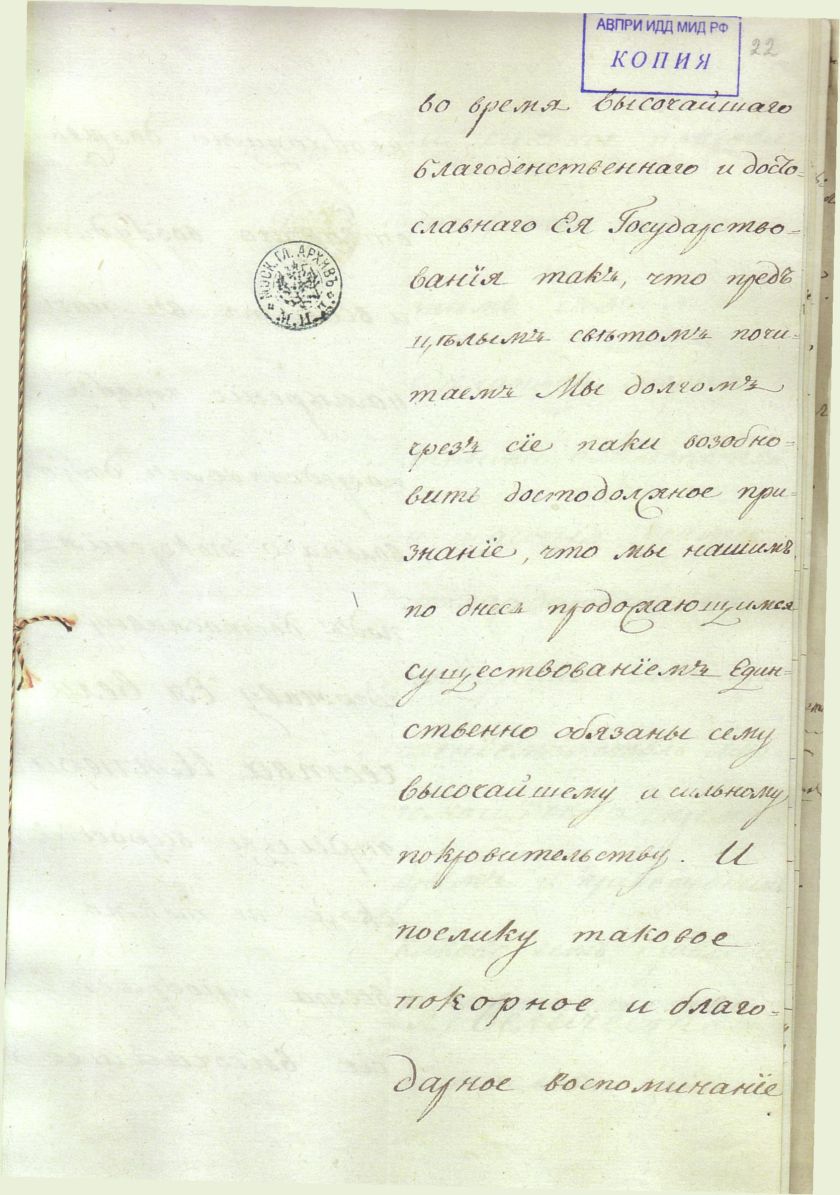 АВПРИ ИДД МИД РФ
КОПИЯ
22
МОСК. ГЛ. АРХИВЪ М. И. Д.
во время высочайшаго
благоденственнаго и досто-
славнаго Ея Государство-
ванїя такъ, что предъ
цѣлымъ свѣтомъ почи-
таемъ Мы долгомъ
чрезъ сїе паки возобно-
вить достодолжное при-
знанїе, что мы нашимъ
по днесь продолжающимся
существованїемъ един-
ственно обязаны сему
высочайшему и сильному
покровительству. И
поелику таковое
покорное и благо-
дарное воспоминанїе